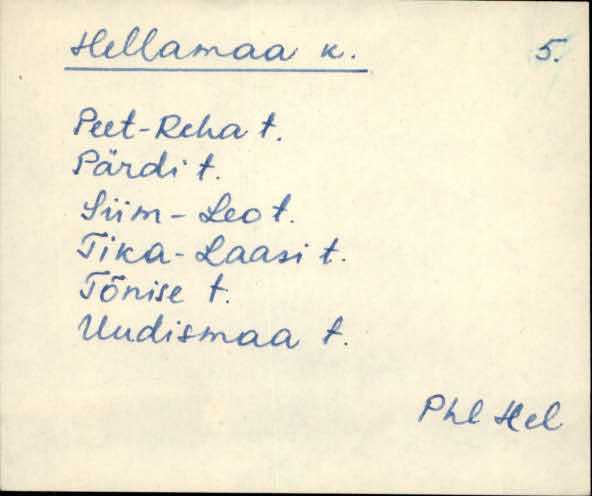 Hellamaa k. 5.
Peet-Reha t.
Pärdi t.
Siim-Leo t.
Tika-Laasi t.
Tõnise t.
Uudismaa t.
Phl Hel